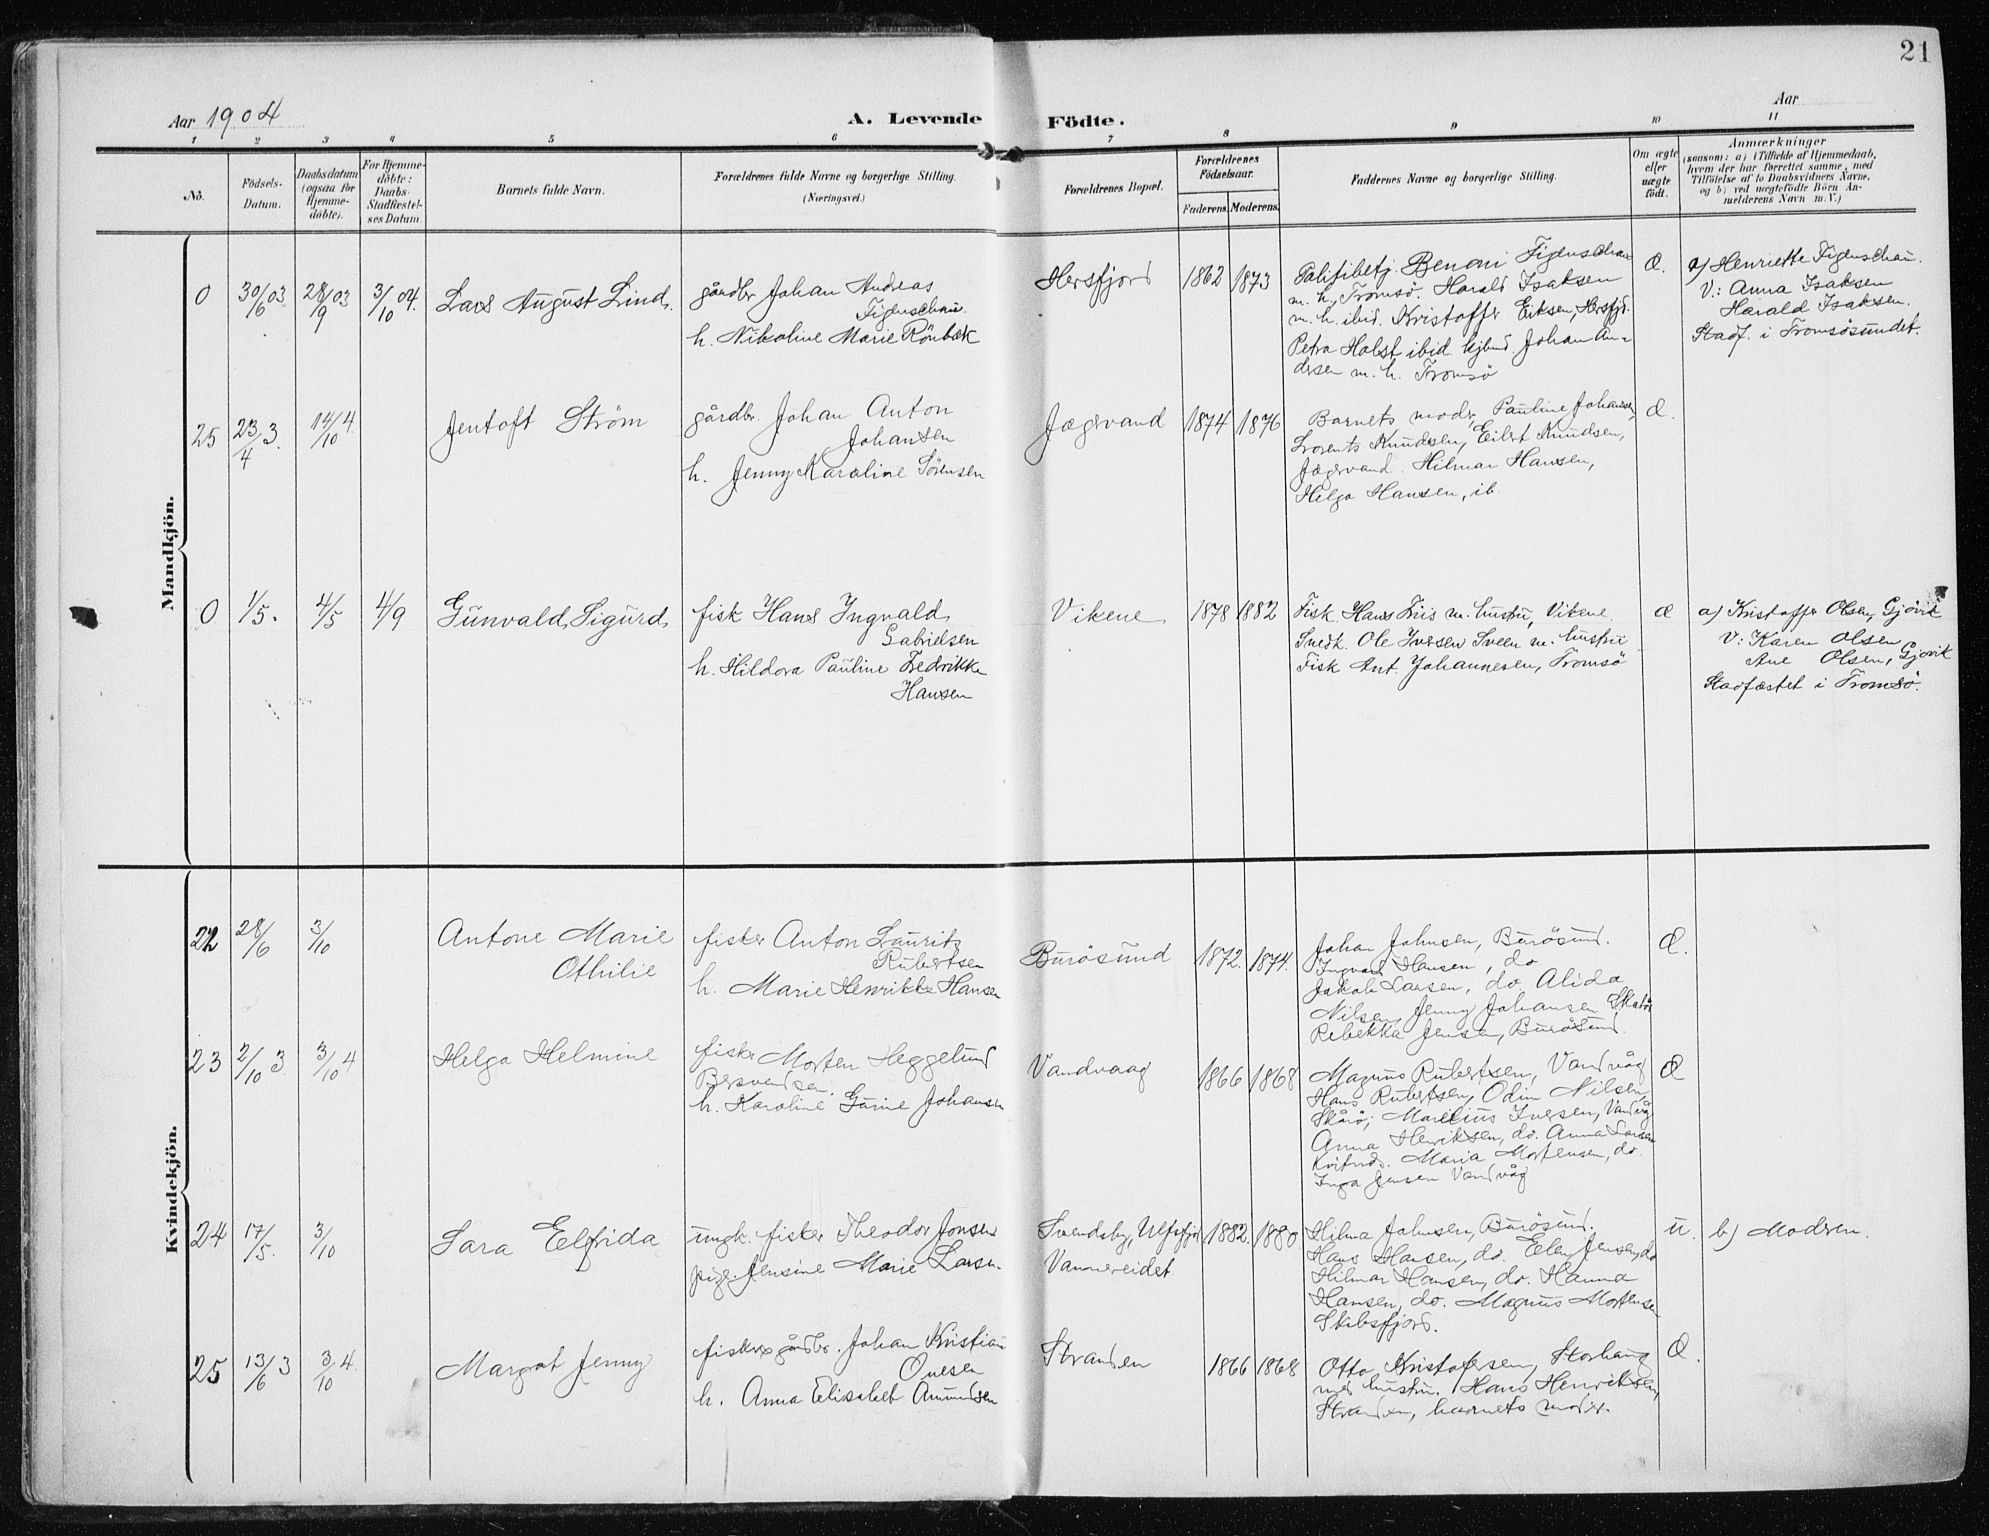 21
Aar 1904
A. Levende Födte.
Aar
1 2 3 4 5 6 7 8 9 10 11
No.
Födsels-Datum.
Daabsdatum (ogsaa for Hjemmedöbte).
For Hjemmedöbte: Daabs-Stadfæstelses Datum.
Barnets fulde Navn.
Forældrenes fulde Navne og borgerlige Stilling.
(Næringsvei.)
Forældrenes Bopæl.
Forældrenes Födselsaar.
Faderens. Moderens.
Faddernes Navne og borgerlige Stilling.
Om ægte eller uægte födt.
Anmærkninger
(saasom: a) i Tilfælde af Hjemmedaab,
hvem der har forrettet samme, med
Tilföielse af to Daabsvidners Navne,
og b) ved uægtefödte Börn An-
melderens Navn m. V.)
Mandkjön.
0 30/6 03 28/9 03 3/10 04. Lars August Lind
gårdbr Johan Andreas
Figenschau
h. Nikoline Marie Rönbæk
Hersfjord 1862 1873
Politibetj. Benoni Figenschau
m. h. Tromsö. Harald Isaksen
m. h. ibid. Kristoffer Eiksen, Hersfjd.
Petra Holst ibid. Johan An-
dersen m. h. Tromsö
Æ.
a) Henriette Figenschau.
V: Anna Isaksen
Harald Isaksen.
Stadf. i Tromsösundet.
25 23/4 3. 14/10 4. Jentoft Ström
gårdbr. Johan Anton
Johansen
h. Jenny Karoline Sörensen
Jægervand 1874 1876
Barnets moder, Pauline Johansen,
Lorents Knudsen, Eilert Knudsen,
Jægervand. Hilmar Hansen,
Helga Hansen, ib.
Æ.
0 1/5. 4/5 4/9 Gunvald Sigurd
fisk Hans Ingvald
Gabrielsen
h. Hildora Pauline Fredrikke
Hansen
Vikene 1878 1882
Fisk. Hans Friis m. hustru, Vikene
Snedk. Ole Iversen Sveen m. hustru
Fisk Ant. Johannesen, Tromsö
æ
a) Kristoffer Olsen, Gjövik
V: Karen Olsen
Ane Olsen, Gjövik
Stadfæstet i Tromsö.
Kvindekjön.
22 28/6 3/10 Antone Marie
Othilie
fisker Anton Laurits
Rubertsen
h. Marie Henrikke Hansen
Burösund 1872. 1874.
Johan Johnsen, Burösund.
Ingvard Hansen, do
Jakob Larsen, do Alida
Nilsen, Jenny Johansen
Rebekka Jensen, Burösund.
Æ.
23 2/10 3. 3/10 4 Helga Helmine
fisker Morten Heggelund
Bersvendsen
h. Karoline Gurine Johansen
Vandvaag 1866 1868
Magnus Rubertsen, Vandvåg
Hans Rubertsen, Odin Nilsen,
Skårö; Marelius Iversen, Vandvåg
Anna Henriksen, do. Anna Larsen
Maria Mortensen, do.
Inga Jensen Vandvåg
Æ
24 17/5. 3/10 Sara Elfrida
ungk. fisker Theodor Jonsen
pige Jensine Marie Larsen.
Svendsby, Ulfsfjord
Vannereidet
1882. 1880.
Hilma Johnsen, Burösund.
Hans Hansen, do. Elen Jensen, do
Hilmar Hansen, do. Hanna
Hansen, do. Magnus Mortensen
Skibsfjord.
u. b) Moderen.
25 13/6 3 3/10 4. Margot Jenny
fisker og gårdbr. Johan Kristian
Ovesen
h. Anna Elisabet Amundsen
Stranden 1866 1868
Otto Kristofersen, Storhaug
med hustru. Hans Henriksen,
Stranden, barnets moder.
Æ.